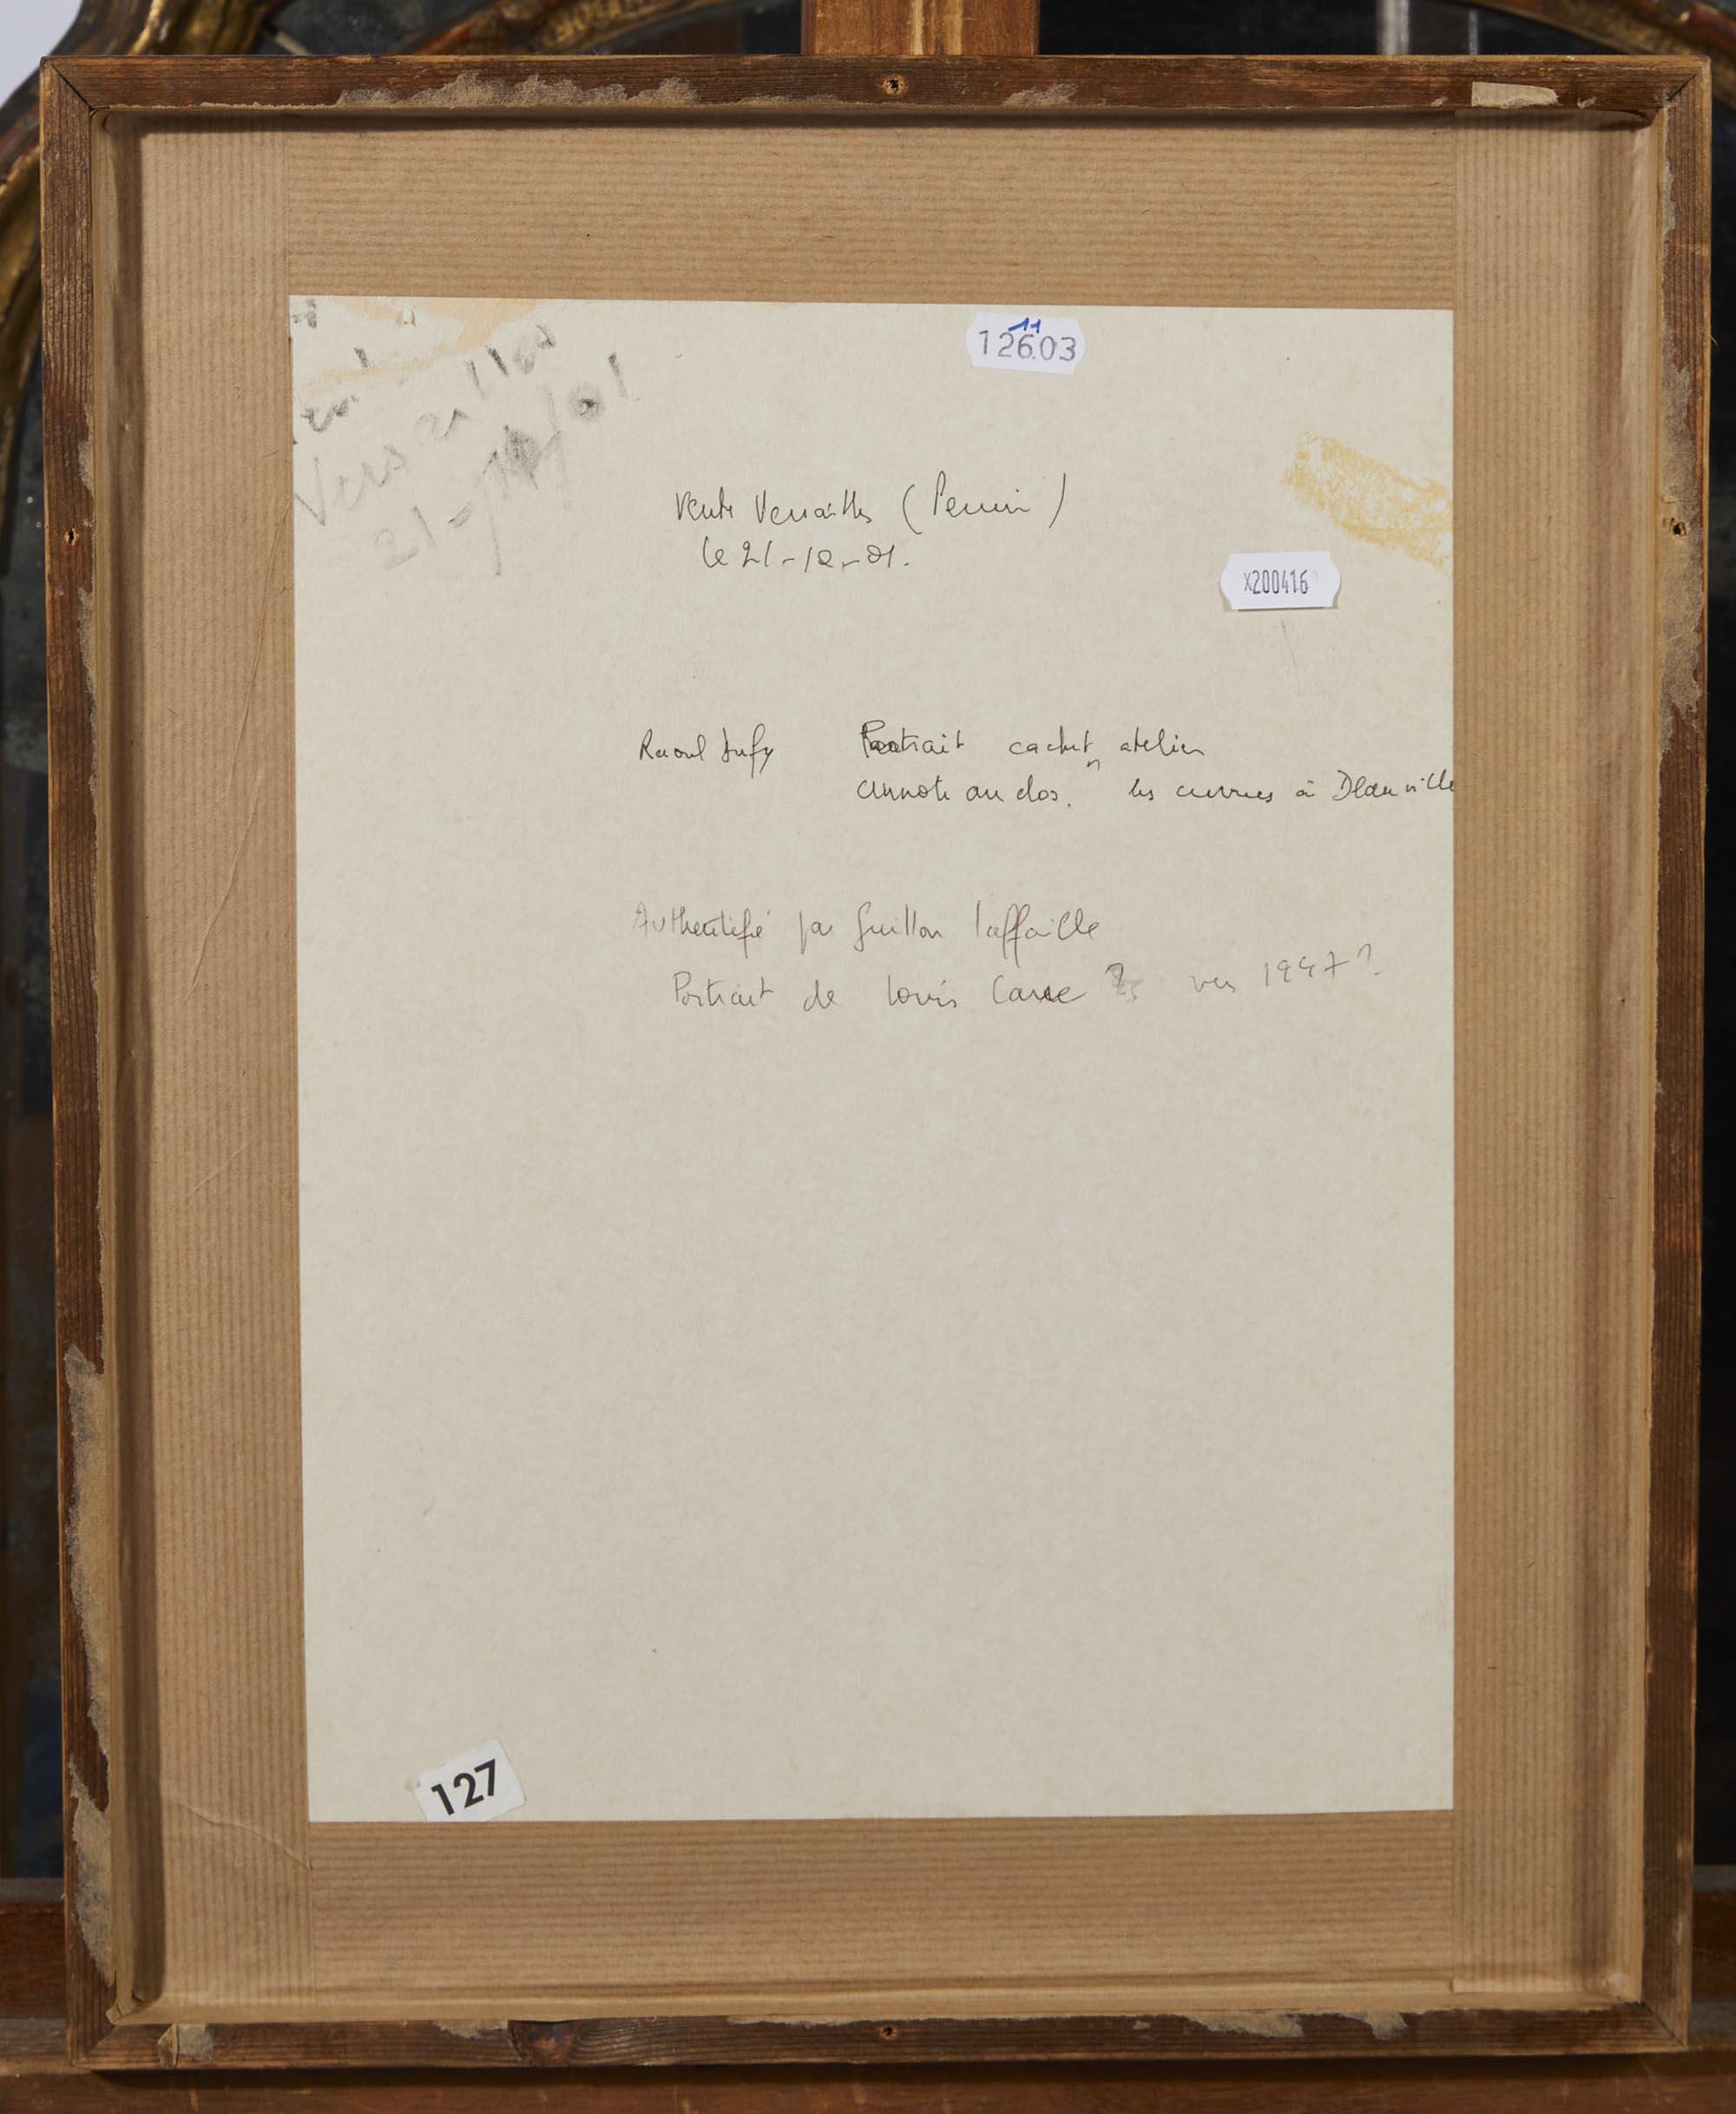 11
12603
Versailles
21-12/01
Vente Versailles (Perrin)
le 21-12-01.
X200416
Raoul Dufy Portrait cachet atelier
annoté au dos. les courses à Deauville
Authentifié par Guillon laffaille
Portrait de Louis Carré ? vers 1947?
127